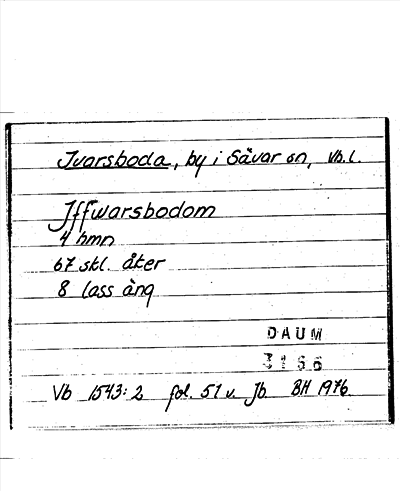 Ivarsboda, by i Sävar sn, Vb.l.
Iffwarsbodom
4 hmn
67 skl. åker
8 lass äng
DAUM
3166
Vb 1543:2 fol. 51 v. Jb BH 1976.